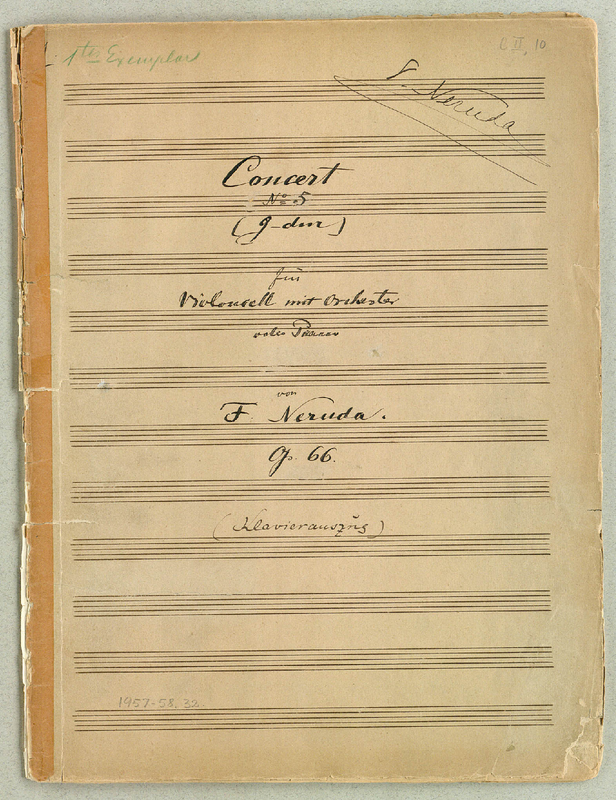 1tes Exemplar
C II, 10
F. Neruda
Concert
No 5
(g-dur)
für
Violoncell mit Orchester
oder Piano
von
F. Neruda.
Op. 66.
(Klavierauszug)
1957-58. 32